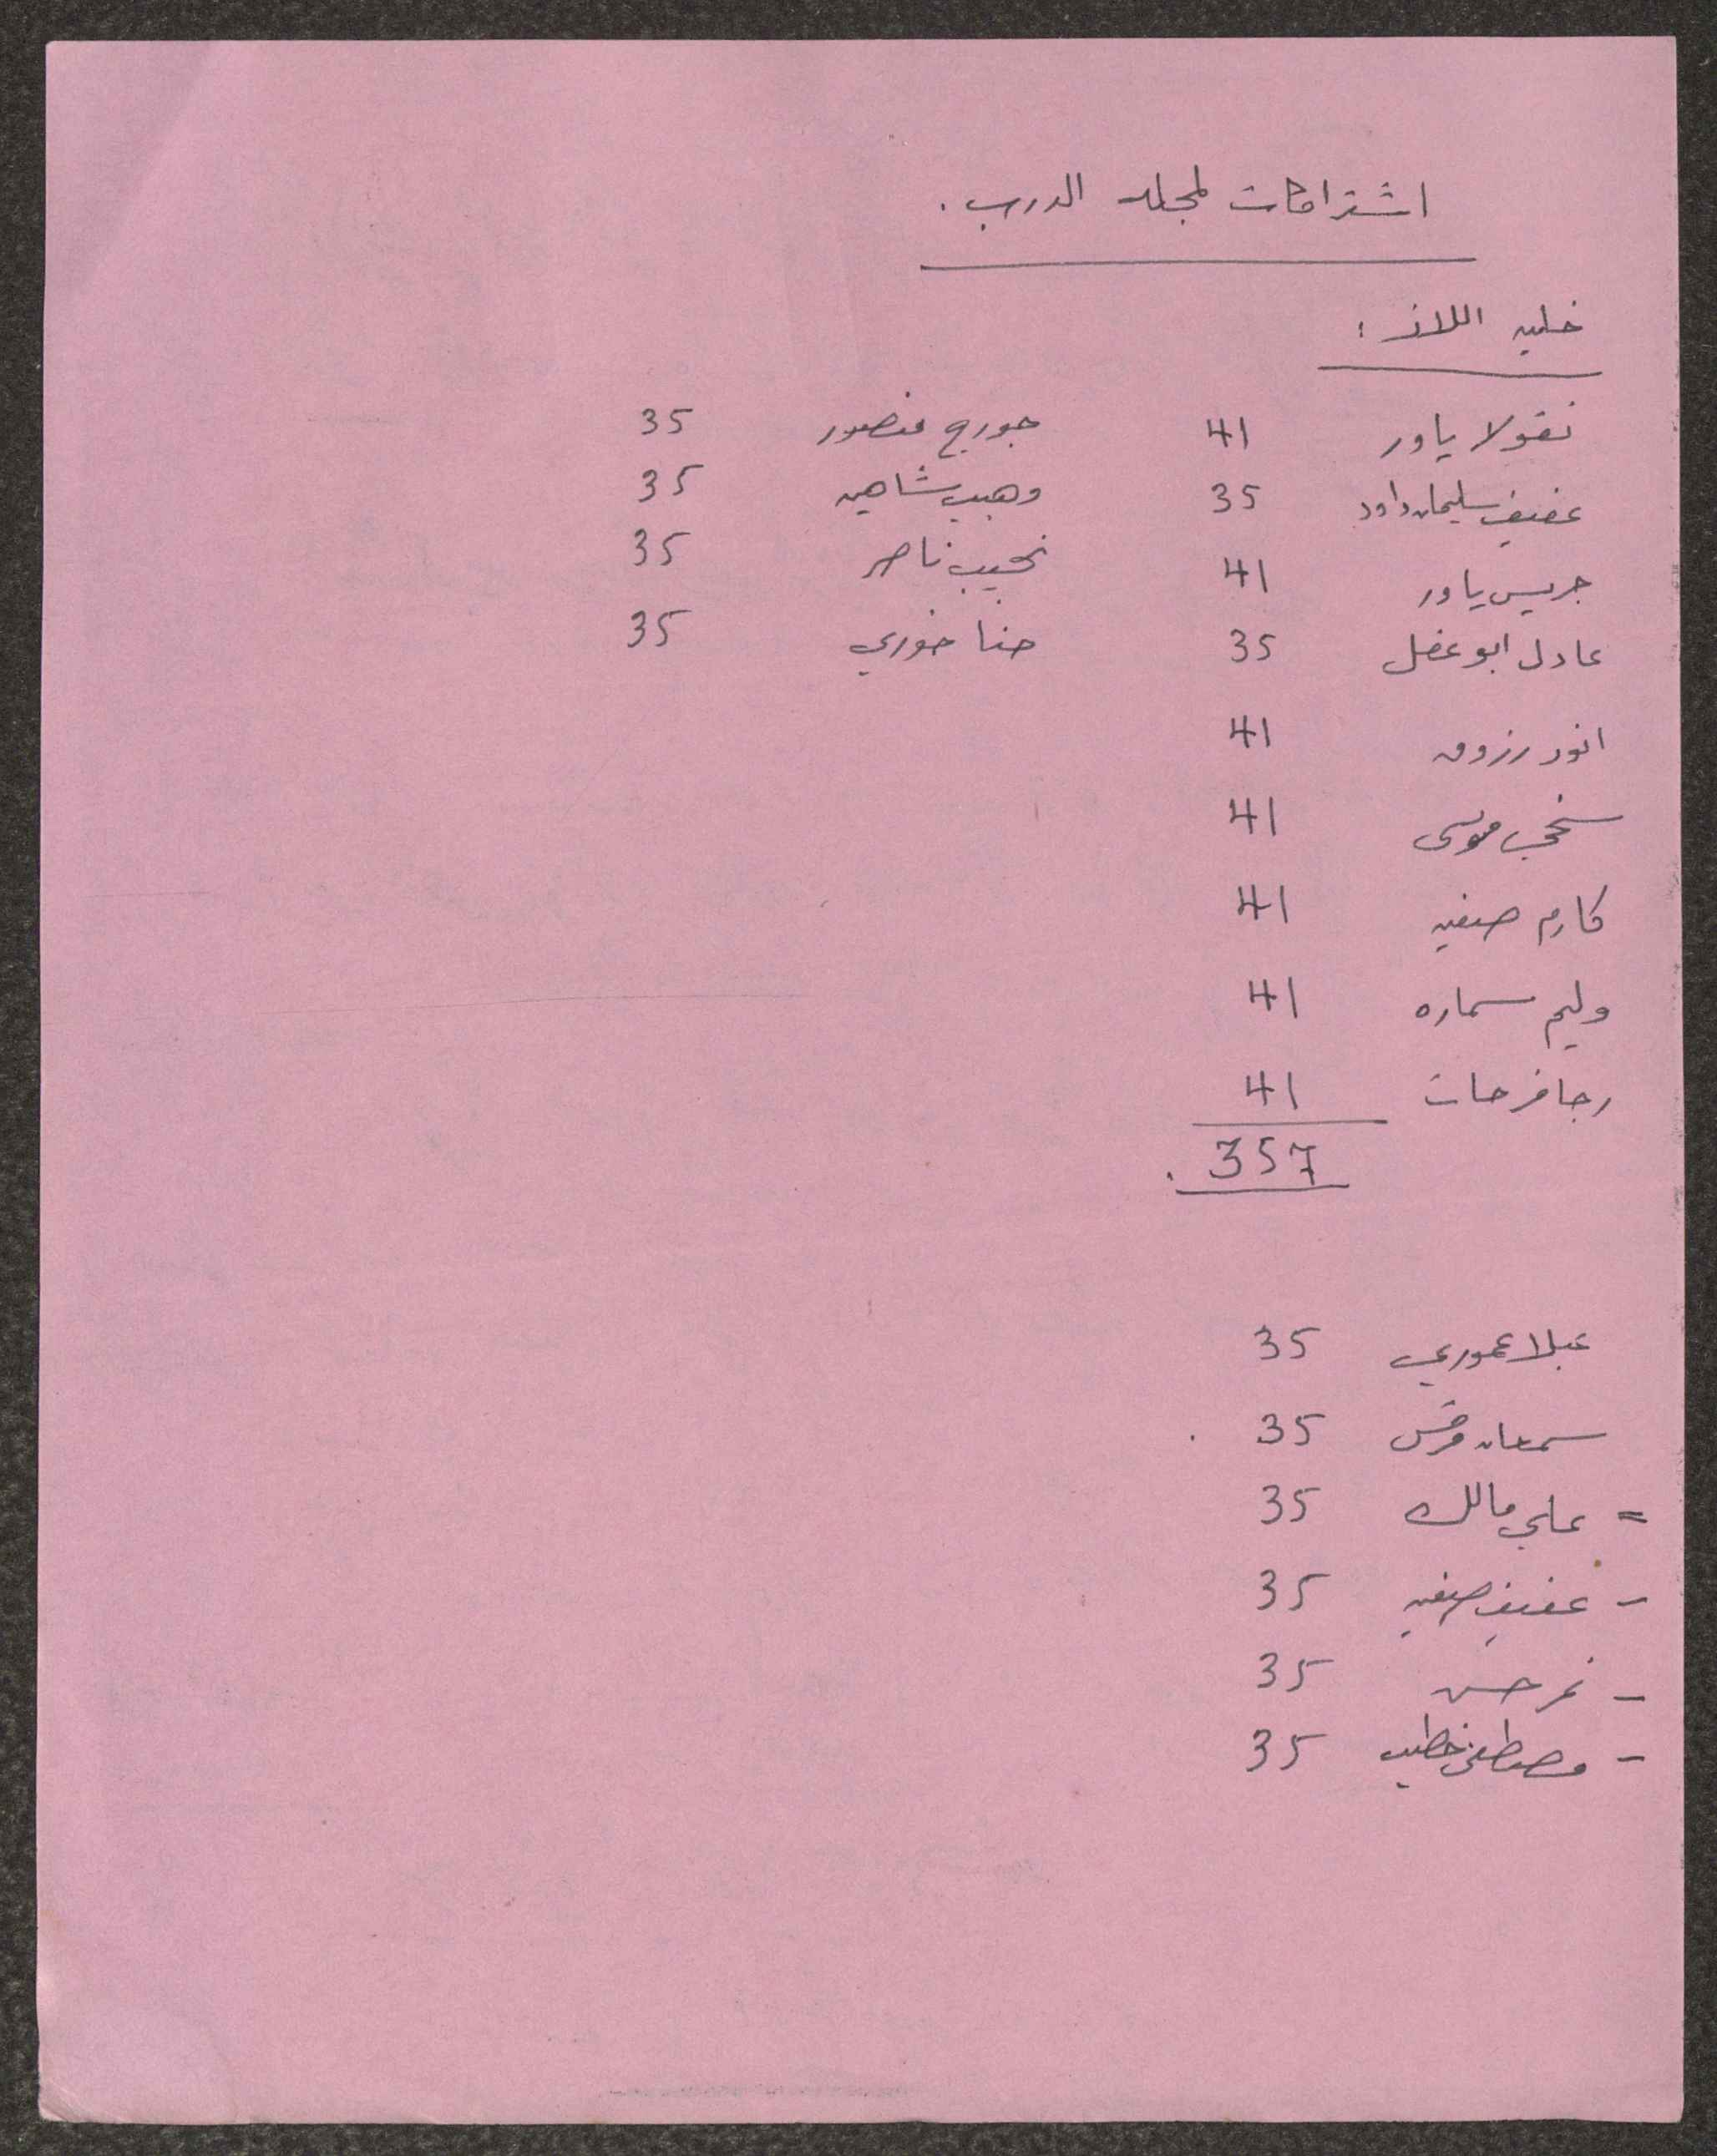 اشتراكات لمجلة الدرب .
خلية اللاز :
نقولا ياور 41 جورج منصور 35
عفيف سليمان داود 35 وهيب شاهين 35
جريس ياور 41 نجيب ناصر 35
عادل ابو عقل 35 حنا خوري 35
انور رزوق 41
موسى 41
كارم صفيه 41
وليم سماره 41
رجا فرحات 41
357 .
عبلا عموري 35
سمعان مرقس 35 .
= علي مالك 35
- عفيف صفيه 35
- نمر حسن 35
- مصطفى خطيب 35